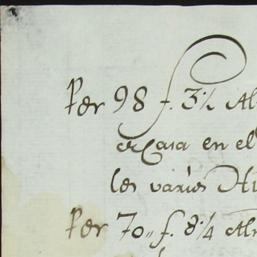 Per 98 f. 3½ Al
Casa en el
les varios
Per 70,, f. 8¼ Al